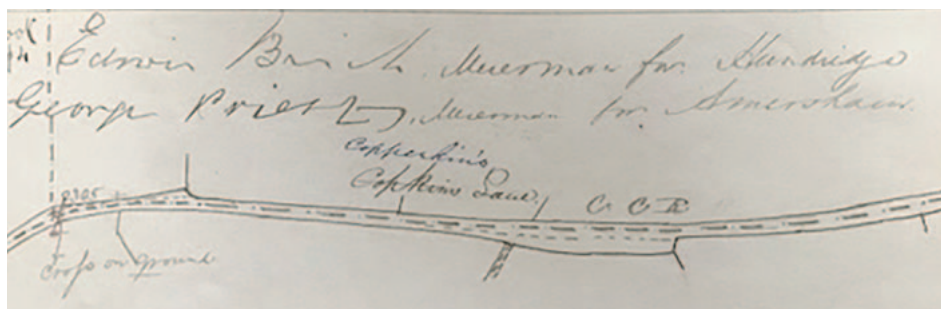 Edwin Birch. Meerman for Hundridge
George Priest, Meerman for Amersham.
Copperkin's
Copkins Lane.
C. C. R.
Cross on ground